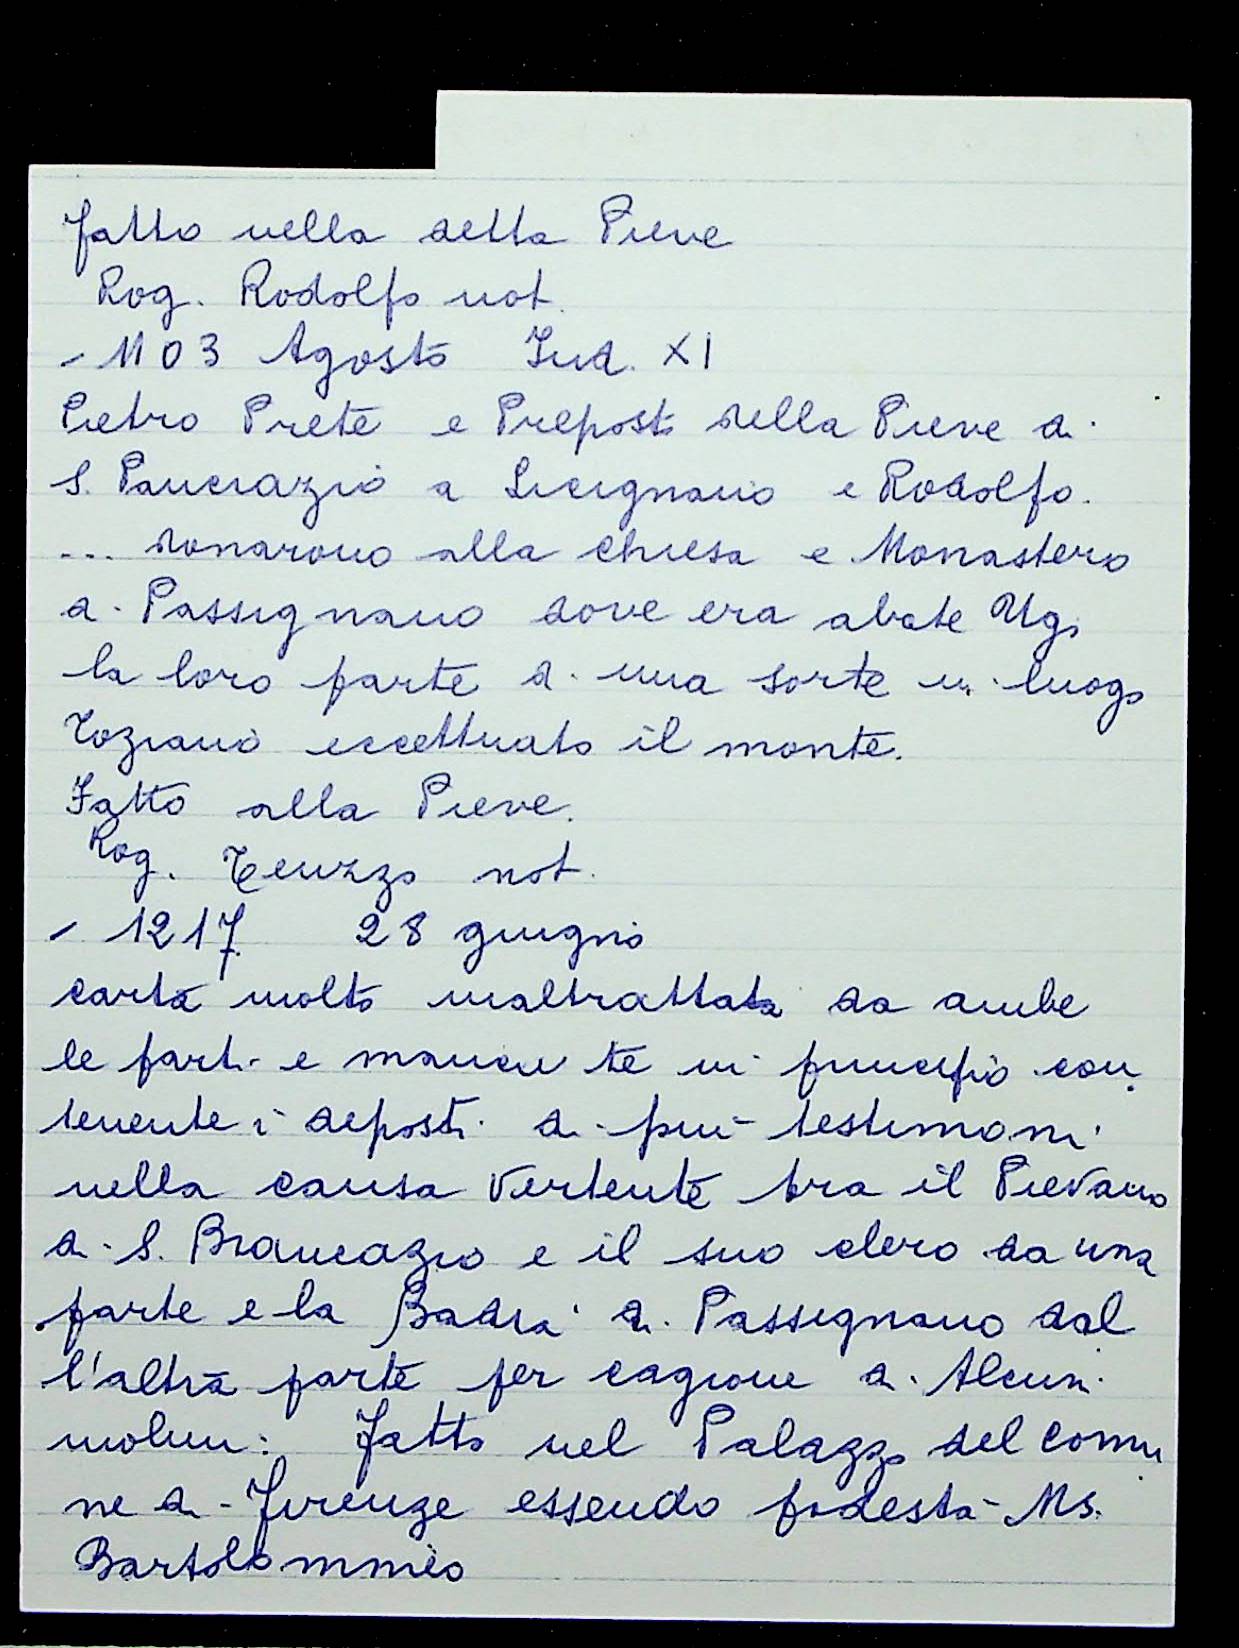 fatto nella detta Pieve
Rog. Rodolfo not.
- 1103 Agosto Ind. XI
Pietro Prete e Preposto della Pieve di
S. Pancrazio a Lucignano e Rodolfo.
... donarono alla chiesa e Monastero
di Passignano dove era abate Ugo
la loro parte di una sorte in luogo
Toziano eccettuato il monte.
Fatto alla Pieve.
Rog. Teuzzo not.
- 1217 28 giugno
carta molto maltrattata da ambe
le parti e mancante in principio con
tenente i deposti di più testimoni
nella causa vertente tra il Pievano
di S. Brancazio e il suo clero da una
parte e la Badia di Passignano dal
l'altra parte per cagione di Alcuni
molini: fatto nel Palazzo del comu
ne di Firenze essendo podestà Ms.
Bartolommeo